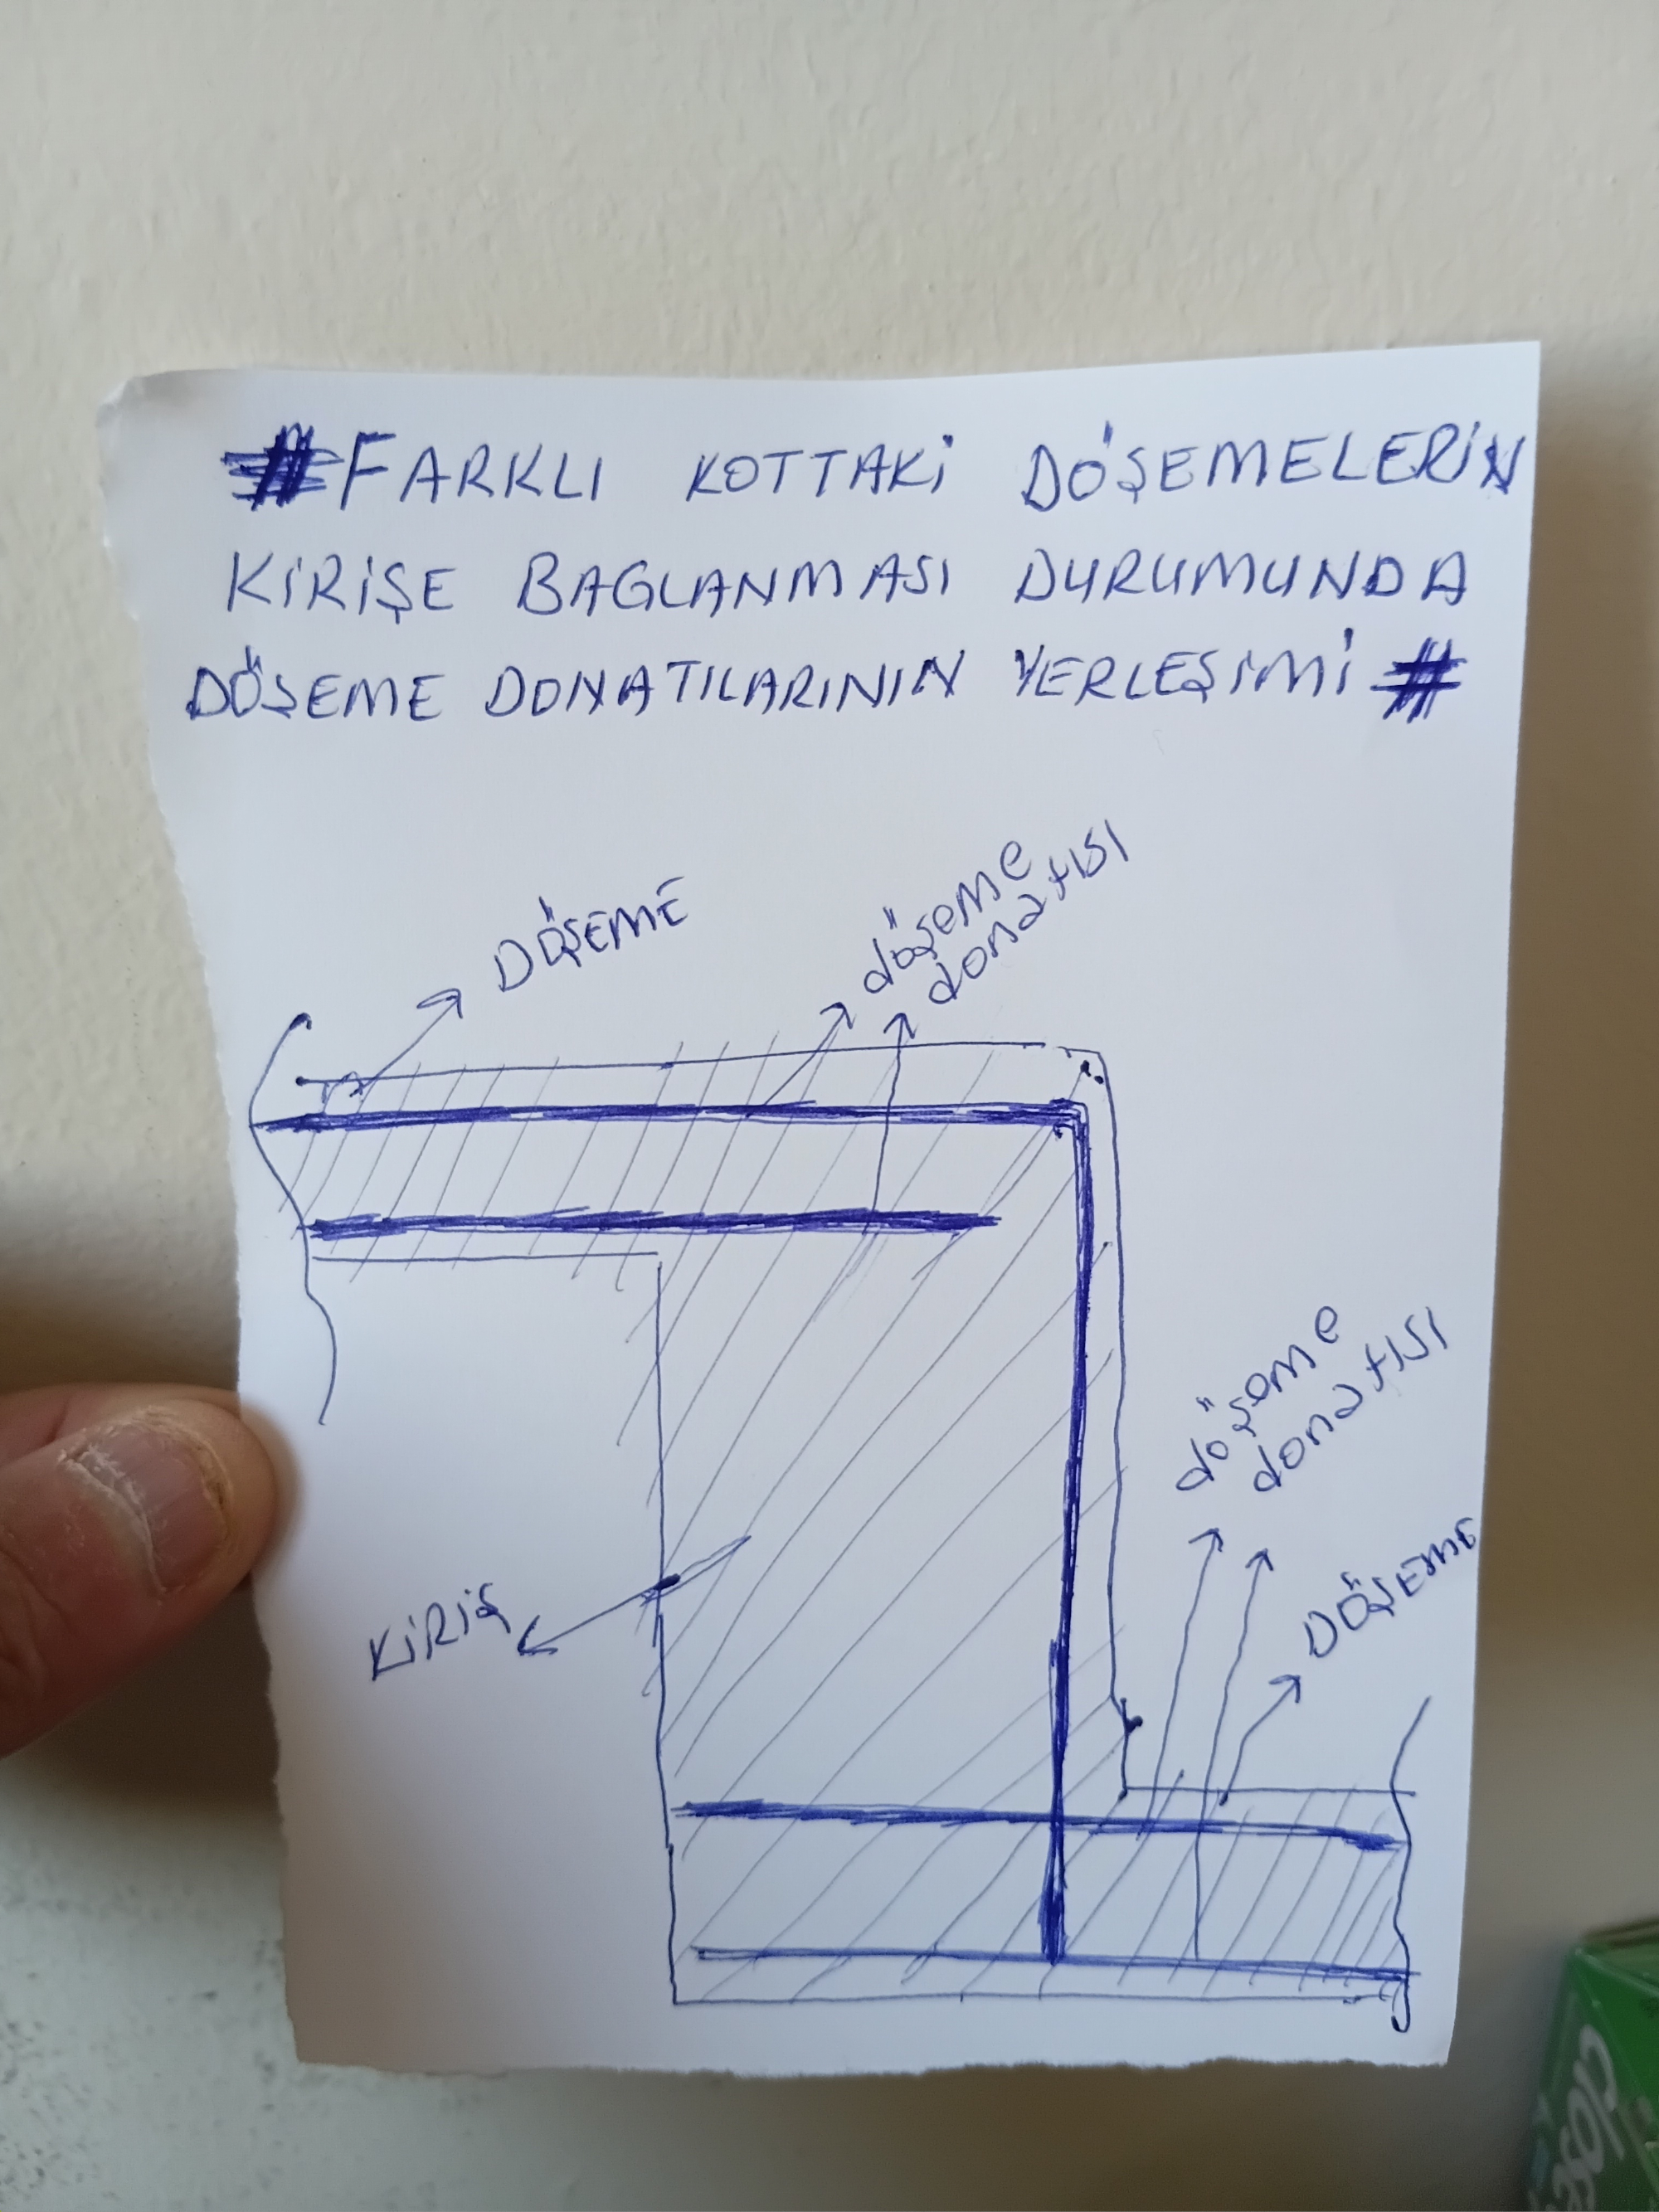 #FARKLI KOTTAKİ DÖŞEMELERİN
KİRİŞE BAGLANMASI DURUMUNDA
DÖŞEME DONATILARININ YERLEŞİMİ #
DÖŞEME
döşeme
donatısı
döşeme
donatısı
DÖŞEME
KİRİŞ